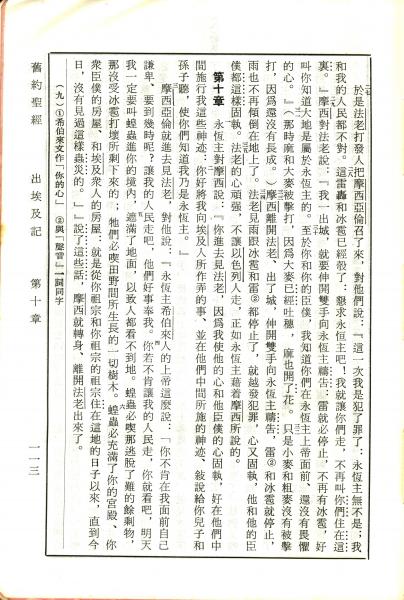 於是法老打發人把摩西亞倫召了來、對他們說：『這一次我是犯了罪了：永恆主無不是；我
和我的人民都不對。這雷轟和冰雹已經彀了：懇求永恆主吧！我就讓你們走，不再叫你們住在這
裏。』摩西對法老說：『我一出城，就要伸開雙手向永恆主禱告：雷就必停止，不再有冰雹，好
叫你知道大地是屬於永恆主的。至於你和你的臣僕，我知道你們在永恆主上帝面前，還沒有畏懼
的心。』（那時麻和大麥被擊打，因爲大麥已經吐穗，麻也開了花。只是小麥和粗麥沒有被擊
打，因爲還沒有長成。）摩西離開法老、出了城，伸開雙手向永恆主禱告；雷②和冰雹就停止，
雨也不再傾倒在地上了。法老見雨跟冰雹和雷②都停止了，就越發犯罪，心又固執，他和他的臣
僕都這樣固執。法老的心頑強，不讓以色列人走，正如永恆主藉着摩西所說的。
第十章 永恆主對摩西說：『你進去見法老，因爲我使他的心和他臣僕的心固執，好在他們中
間施行我這些神迹；你好將我向埃及人所作弄的事、並在他們中間所施的神迹、敍說給你兒子和
孫子聽，使你們知道我乃是永恆主。』
摩西亞倫就進去見法老，對他說：『永恆主希伯來人的上帝這麼說：「你不肯在我面前自己
謙卑、要到幾時呢？讓我的人民走吧，他們好事奉我。你若不肯讓我的人民走，你就看吧，明天
我一定要叫蝗蟲進你的境內，遮滿了地面，以致人都看不到地。蝗蟲必喫那逃脫了難的餘剩物，
那沒受冰雹打壞所剩下來的；牠們必喫田野間所生長的一切樹木。蝗蟲必充滿了你的宮殿、你
衆臣僕的房屋、和埃及衆人的房屋：就是從你祖宗和你祖宗的祖宗住在這地的日子以來，直到今
日，沒有見過這樣蟲災的。」』說了這些話，摩西就轉身、離開法老出來了。
（九）①希伯來文作「你的心」 ②與「聲音」一詞同字
舊約聖經 出埃及記 第十章 一一三